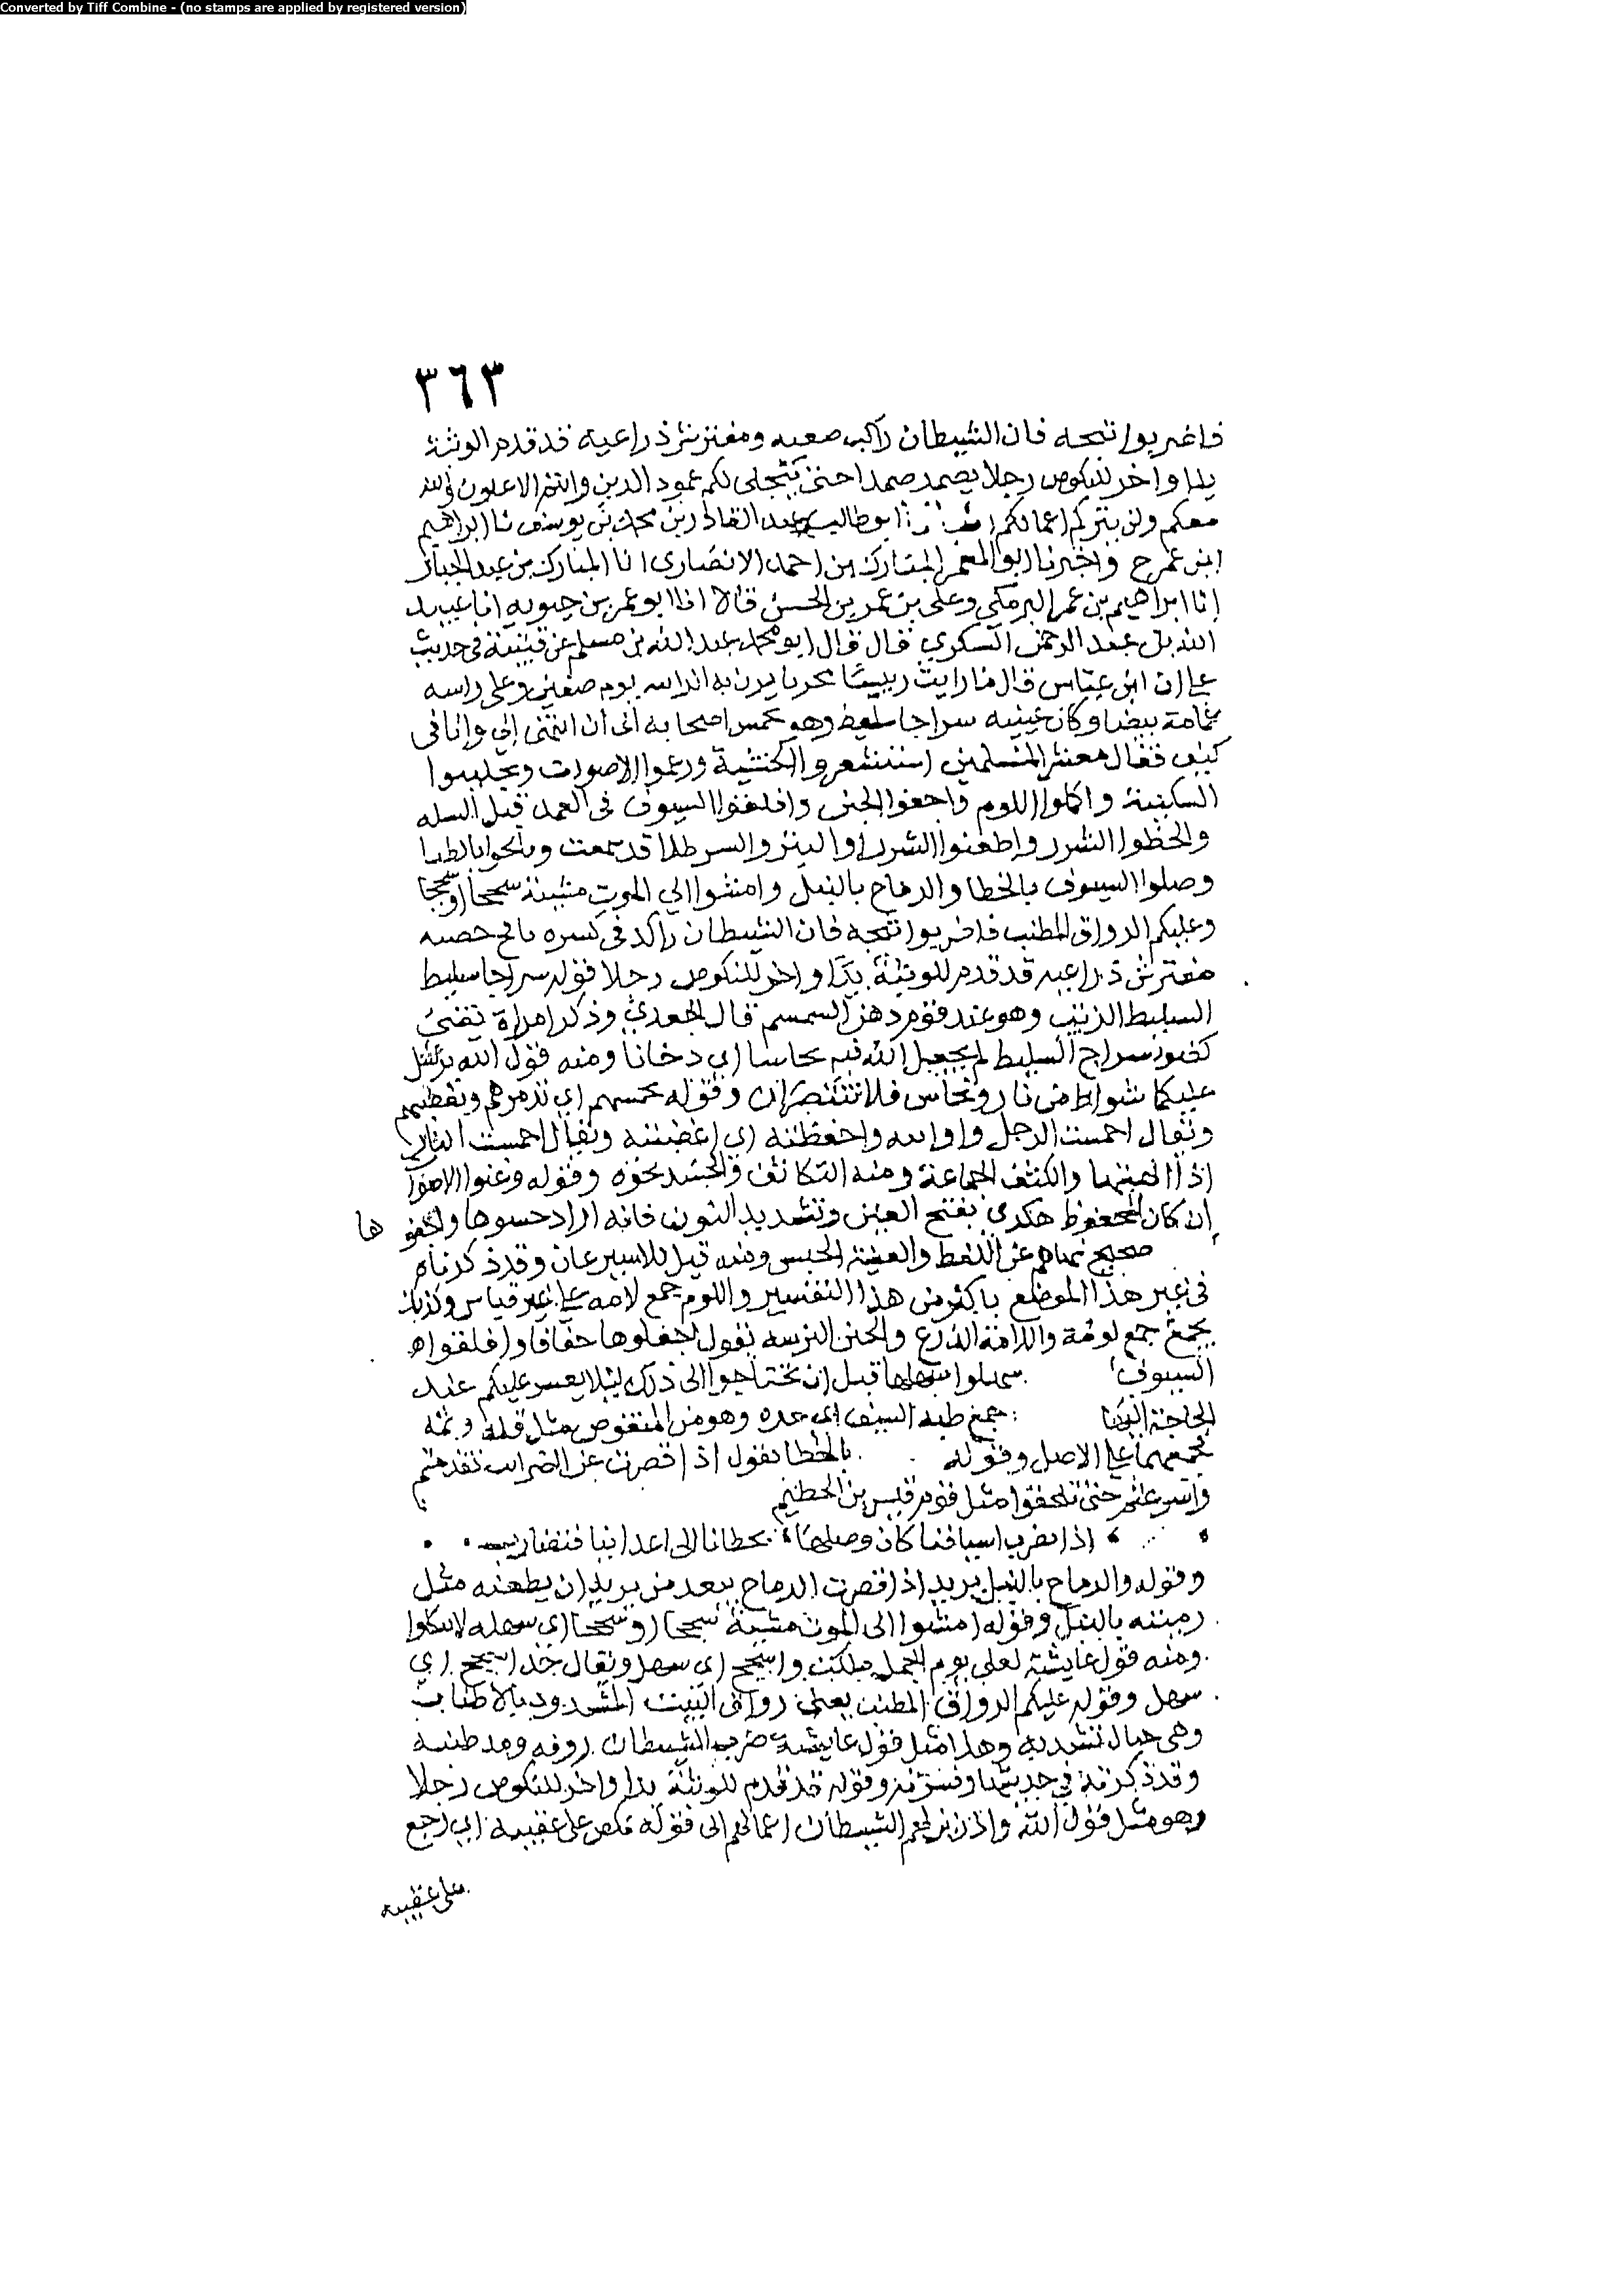 Converted by Tiff Combine - (no stamps are applied by registered version)
٣٦٣
فاضربوا ثبجه فان الشيطان راكب صعبه ومفترش ذراعيه قد قدم الوثبة
يدا واخر للنكوص رجلا فصمدا صمدا حتى يتجلى لكم عمود الدين وانتم الاعلون والله
معكم ولن يتركم اعمالكم ابو طالب عبد القادر بن محمد بن يوسف نا ابراهيم
ابن عمر ح واخبرنا ابو المعمر المبارك بن احمد الانصاري انا المبارك بن عبد الجبار
انا ابراهيم بن عمر البرمكي وعلي بن عمر بن الحسن قالا انا ابو عمر بن حيويه انا عبيد
الله بن عبد الرحمن السكري قال قال ابو محمد عبد الله بن مسلم بن قتيبة في حديث
علي ان ابن عباس قال ما رايت رييسا محربا يزن به لرايته يوم صفين وعلى راسه
عمامة بيضا وكان عينيه سراجا سليط وهو يحمس اصحابه الى ان انتهى الي وانا في
كثف فقال معشر المسلمين استشعروا الخشية وعنوا الاصوات وتجلببوا
السكينة واكملوا اللوم واخفوا الجنن واقلقوا السيوف في الغمد قبل السله
والحظوا الشزر واطعنوا الشزر او النتر او اليسر كلا قد سمعت ونافحوا بالظبا
وصلوا السيوف بالخطا والرماح بالنبل وامشوا الى الموت مشية سجحا او سجحا
وعليكم الرواق المطنب فاضربوا ثبجه فان الشيطان راكد في كسره نافج حضنيه
مفترش ذراعيه قد قدم للوثبة يدا واخر للنكوص رجلا قوله سراجا سليط
السليط الزيت وهو عند قوم دهن السمسم قال الجعدي وذكر امراة تضيء
كضوء سراج السليط لم يجعل الله فيه نحاسا اي دخانا ومنه قول الله يرسل
عليكما شواظ من نار ونحاس فلا تنتصران وقوله يحمسهم اي يذمرهم ويغضبهم
ويقال احمست الرجل واوابته واحفظته اي اغضبته ويقال احمست النار
اذا الهبتها والكثف الجماعة ومنه التكاثف والحشد نحوه وقوله وعنوا الاصوا
ان كان المحفوظ هكذى بفتح العين وتشديد النون فانه اراد احبسوها واخفو ها
صحيح نهاهم عن اللغط والتعنية الحبس ومنه قيل للاسير عان وقد ذكرناه
في غير هذا الموضع باكثر من هذا التفسير واللوم جمع لامه على غير قياس وكذلك
يجمع جمع لومة واللامة الدرع والجنن الترسه يقول اجعلوها خفافا واقلقوا
السيوف سهلوا سلها قبل ان تحتاجوا الى ذلك ليلا يعسر عليكم عند
الحاجة اليها جمع ظبة السيف اي حده وهو من المنقوص مثل قلة وثبة
يجمعهما على الاصل وقوله بالخطا يقول اذا قصرت عن الضرايب تقدمتم
واسرعتم حتى تلحقوا مثل قول قيس بن الخطيم
اذا قصرت اسيافنا كان وصلها خطانا الى اعداينا فنضارب
وقوله والرماح بالنبل يريد اذا قصرت الرماح ببعد من يريد ان يطعنه مثل
رميته بالنبل وقوله امشوا الى الموت مشية سجحا او سجحا اي سهله لا تنكلوا
ومنه قول عايشة لعلي يوم الجمل ملكت واسجح اي سهل ويقال خد اسجح اي
سهل وقوله عليكم الرواق المطنب يعني رواق البيت المشدود بالاطناب
وهي حبال تشد به وهذا مثل قول عايشة ضرب الشيطان روقه ومد طنبه
وقد ذكرته في حديثها وفسرته وقوله قد قدم للوثبة يدا واخر للنكوص رجلا
وهو مثل قول الله واذ زين لهم الشيطان اعمالهم الى قوله نكص على عقبيه اي رجع
على عقبيه